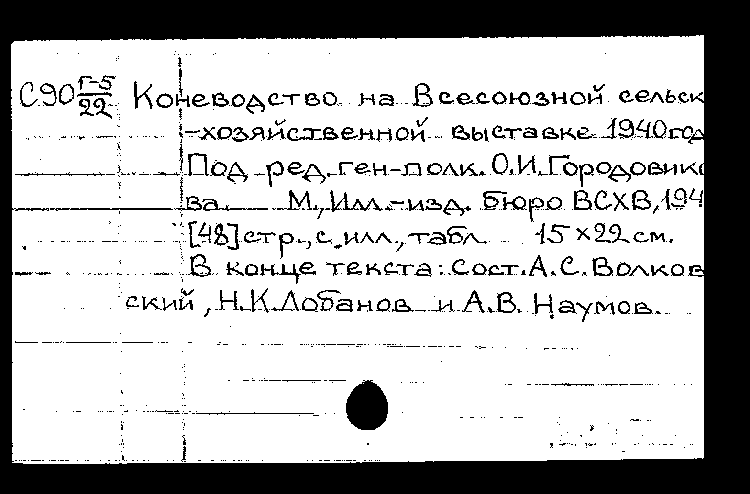 С90 Г-5/22 Коневодство на Всесоюзной сельск
-хозяйственной выставке 1940 год
Под ред. ген-полк. О.И. Городовико
ва. М., Илл.-изд. бюро ВСХВ, 194
[48] стр., с илл., табл 15 × 22 см.
В конце текста: Сост. А.С. Волков
ский, Н.К. Лобанов и А.В. Наумов.